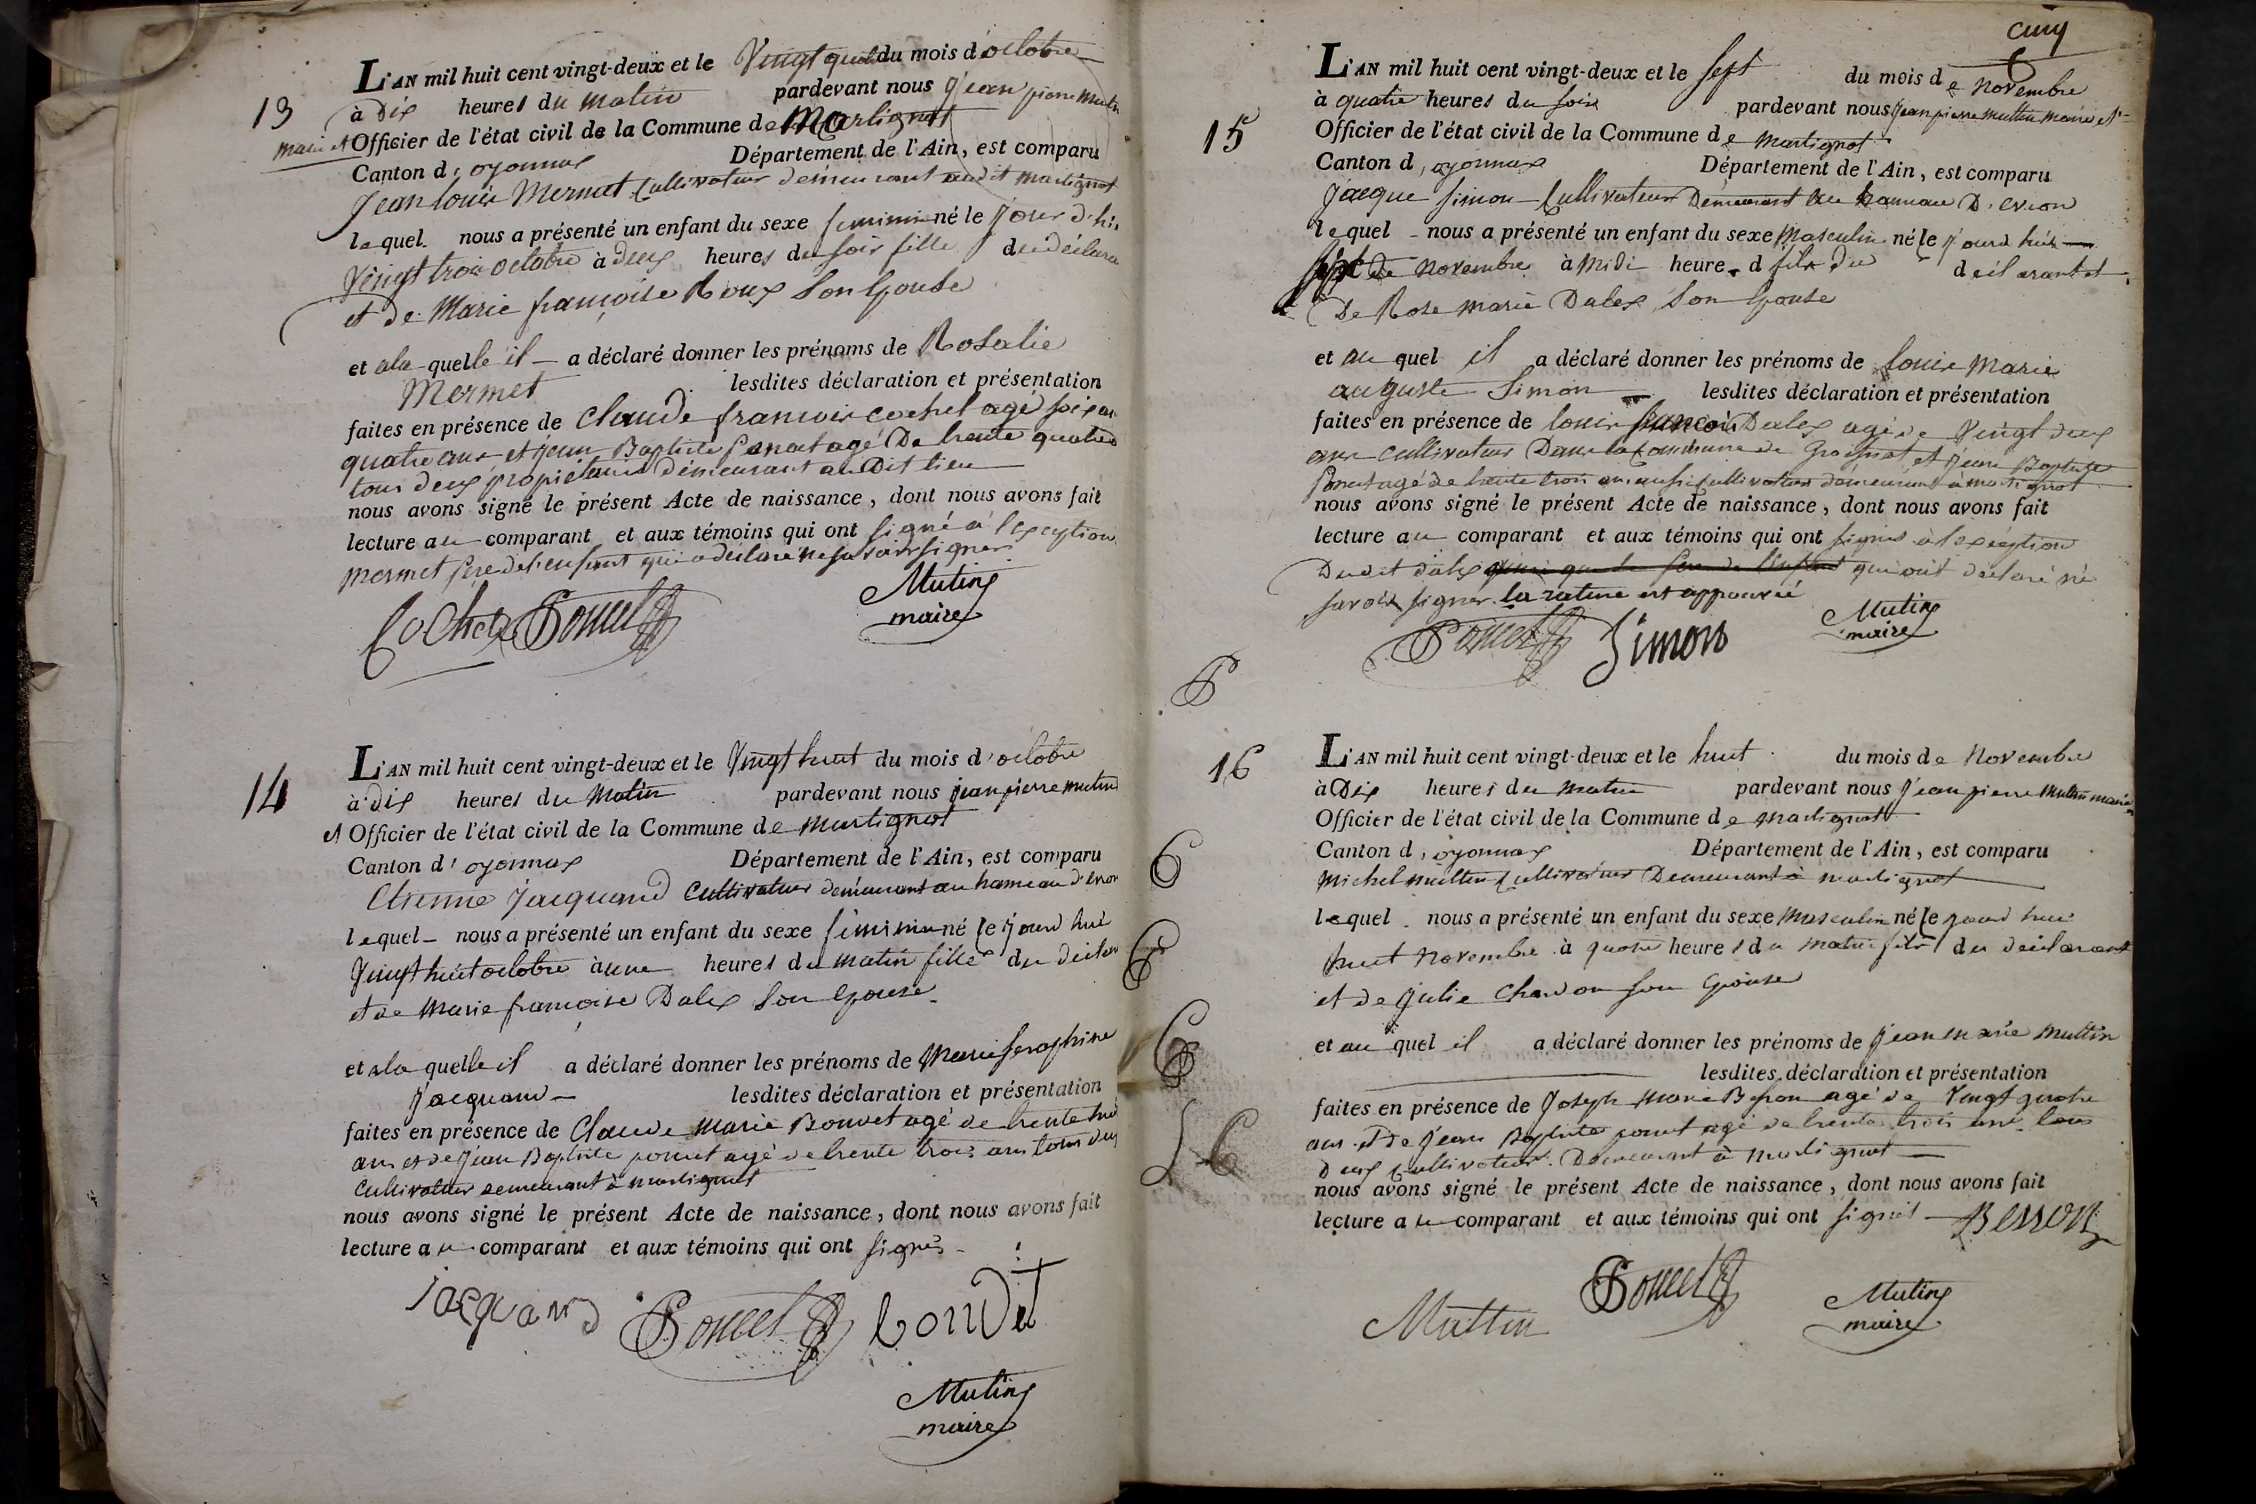 13
L'AN mil huit cent vingt-deux et le Vingt quatre du mois d'octobre
à Dix heures du matin pardevant nous jean pierre Mutin
maire et Officier de l'état civil de la Commune de Martignat
Canton d'oyonnax Département de l'Ain, est comparu
jean louis Mermet Cultivateur demeurant audit martignat
lequel nous a présenté un enfant du sexe feminin né le jour d'hier
Vingt trois octobre à deux heures du soir fille du déclara
et de Marie françoise Roux Son Epouse
et ala quelle il a déclaré donner les prénoms de Rosalie
Mermet lesdites déclaration et présentation
faites en présence de Claude francois cochet agé soixan
quatre ans et jean Baptiste Poncet agé De trente quatre
tous deux propriétaires demeurant au Dit lieu
nous avons signé le présent Acte de naissance, dont nous avons fait
lecture au comparant et aux témoins qui ont signé à l'exception
Mermet père de l'enfant qui a déclaré ne savoir signer
Cochet Poncet Mutin
maire
14
L'AN mil huit cent vingt-deux et le Vingt huit du mois d'octobre
à dix heures du Matin pardevant nous jean pierre mutin
et Officier de l'état civil de la Commune de Martignat
Canton d'oyonnax Département de l'Ain, est comparu
Etienne Jacquand Cultivateur demeurant au hameau d'evron
lequel nous a présenté un enfant du sexe feminin né le jourd hui
Vingt huit octobre à une heures du matin fille du déclar
et de Marie françoise Dalex Son Epouse
et ala quelle il a déclaré donner les prénoms de Marie seraphine
jacquand lesdites déclaration et présentation
faites en présence de Claude Marie Bonvet agé de trente huit
ans et de jean Baptiste poncet agé de trente trois ans tous deux
Cultivateur demeurant à martignat
nous avons signé le présent Acte de naissance, dont nous avons fait
lecture au comparant et aux témoins qui ont signés
jacquand Poncet bonvet
Mutin
maire
cinq
15
L'AN mil huit cent vingt-deux et le sept du mois de novembre
à quatre heures du soir pardevant nous jean pierre muttin maire et
Officier de l'état civil de la Commune de Martignat
Canton d'oyonnax Département de l'Ain, est comparu
Jacque Simon Cultivateur Demeurant au hameau D'evron
lequel nous a présenté un enfant du sexe Masculin né le jourd hui
sept de novembre à midi heure d fils du déclarant et
De Rose marie Dalex Son Epouse
et au quel il a déclaré donner les prénoms de louis Marie
auguste Simon lesdites déclaration et présentation
faites en présence de louis francois Dalex agé de Vingt deux
ans cultivateur Dans la Commune de Groissiat et jean Baptiste
Poncet agé de trente trois ans aussi cultivateur demeurant à martignat
nous avons signé le présent Acte de naissance, dont nous avons fait
lecture au comparant et aux témoins qui ont signés à l'exception
Dudit dalex ainsi que le père de l'enfant qui ont déclaré ne
savoir signer. la rature est approuvée
Poncet Simon Mutin
maire
16
L'AN mil huit cent vingt-deux et le huit du mois de Novembre
à Dix heures du matin pardevant nous jean pierre Muttin maire
Officier de l'état civil de la Commune de Martignat
Canton d'oyonnax Département de l'Ain, est comparu
Michel muttin Cultivateur Demeurant à martignat
lequel nous a présenté un enfant du sexe Masculin né le jourd hui
huit novembre à quatre heures du matin fils du déclarant
et de julie Chardon son Epouse
et au quel il a déclaré donner les prénoms de jean marie Muttin
lesdites déclaration et présentation
faites en présence de joseph Marie Beson agé de Vingt quatre
ans et de jean Baptiste poncet agé de trente trois ans tous
deux Cultivateur Demeurant à martignat
nous avons signé le présent Acte de naissance, dont nous avons fait
lecture au comparant et aux témoins qui ont signés Besson
Muttin Poncet Mutin
maire